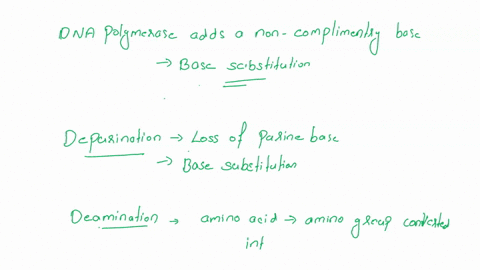 DNA Polymerase adds a non-complimentry base
→ Base scibstitution
Depurination → Loss of purine base
→ Base substitution
Deamination → amino acid → amino group converted
int